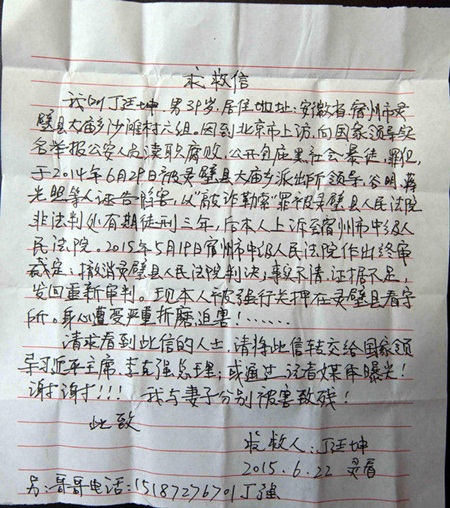 求救信
我叫丁廷坤,男39岁,居住地址:安徽省宿州市灵
璧县大庙乡沙滩村六组,因到北京市上访,向国家领导实
名举报公安人员渎职腐败,公开包庇黑社会暴徒,罪犯,
于2014年6月28日被灵璧县大庙乡派出所领导,谷明,蒋
光照等人诬告陷害,以"敲诈勒索"罪被灵璧县人民法院
非法判处有期徒刑三年,后本人上诉至宿州市中级人
民法院。2015年5月19日宿州市中级人民法院作出终审
裁定:撤消灵璧县人民法院判决;事实不清证据不足,
发回重新审判。现本人被强行关押在灵璧县看守
所。身心遭受严重折磨迫害!……
请求看到此信的人士,请将此信转交给国家领
导习近平主席,李克强总理;或通过记者媒体曝光!
谢谢!!! 我与妻子分别被害致残!
此致
求救人:丁廷坤
2015.6.22 灵看
另:哥哥电话:15187276701丁强